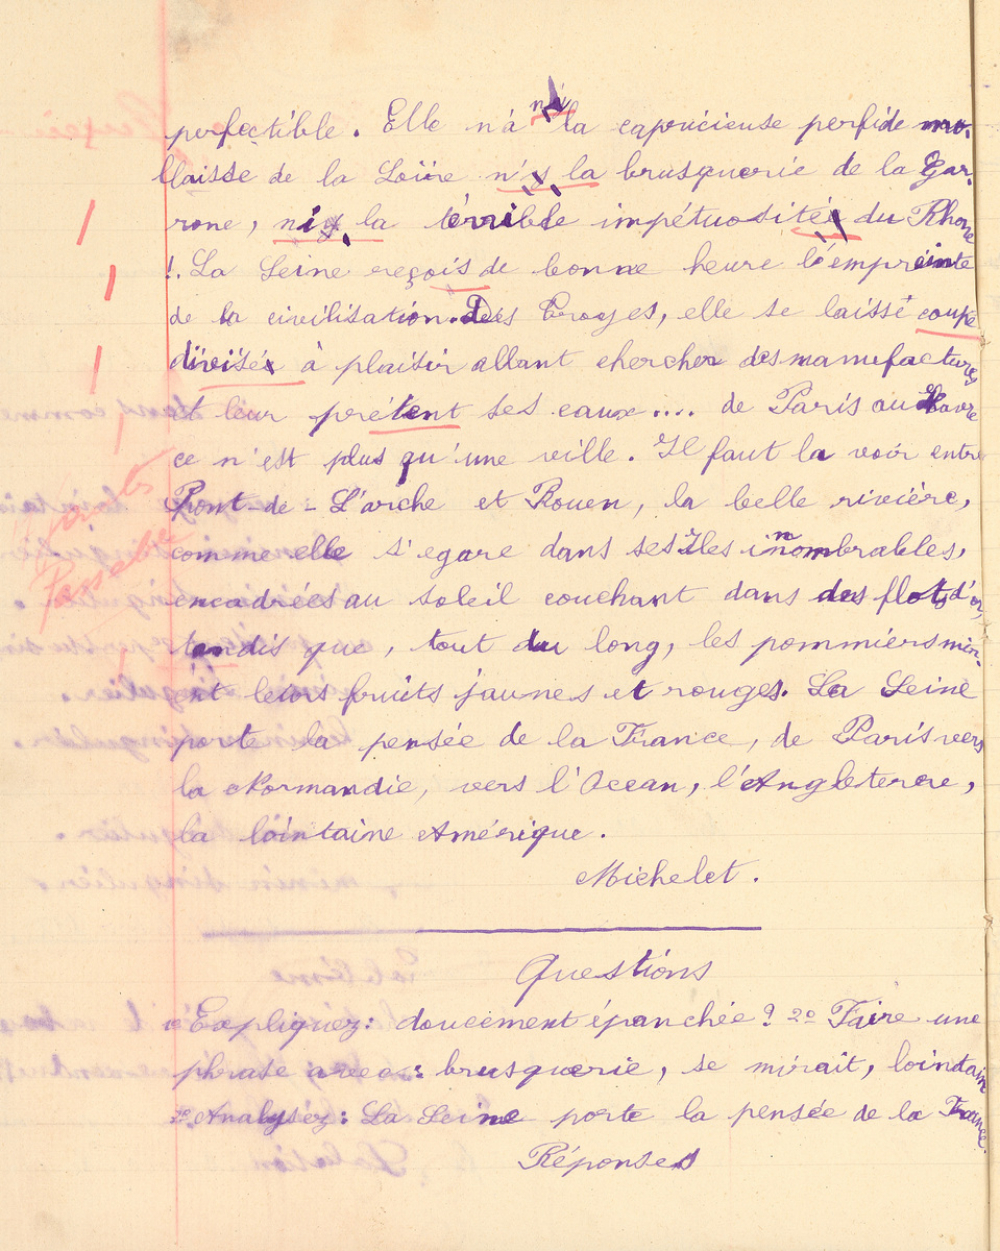 perfectible. Elle n'a ni la capricieuse perfide mo-
llaisse de la Loire n'y la brusquerie de la Gar-
rone, niy la térrible impétuositée du Rhone
!. La Seine reçois de bonne heure l'empreinte
de la civilisation. Des Troyes, elle se laisse coupé
divisé à plaisir allant chercher des manufactures
et leur prétent ses eaux.... de Paris au Havre
ce n'est plus qu'une ville. Il faut la voir entre
Pont-de-L'arche et Rouen, la belle rivière,
comme elle s'egare dans ses Iles innombrables,
encadrées au soleil couchant dans des flots d'or,
tandis que, tout du long, les pommiers mir-
ent leurs fruits jaunes et rouges. La Seine
porte la pensée de la France, de Paris vers
la Normandie, vers l'Ocean, l'Angleterre,
la lointaine Amérique.
Michelet.
Questions
1o Expliquez: doucement épanchée? 2o Faire une
phrase avec: brusquerie, se mirait, lointaine
3o Analysez: La Seine porte la pensée de la France.
Réponses